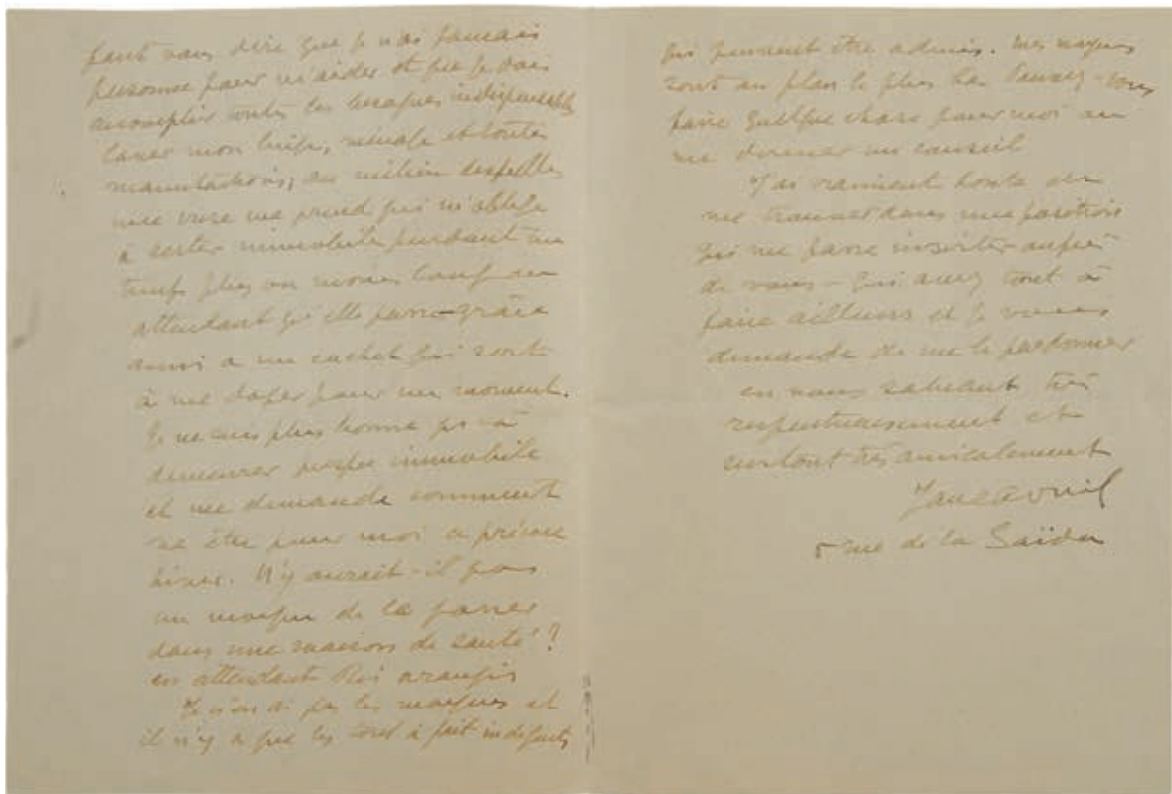 faut vous dire que je n'ai jamais
personne pour m'aider et que je dois
accomplir toutes les besognes indispensables
laver mon linge, ménage et toutes
manutentions, au milieu desquelles
une crise me prend qui m'oblige
à rester immobile pendant un
temps plus ou moins long en
attendant qu'elle passe grâce
aussi à un cachet qui sert
à me doper pour un moment.
Je ne suis plus bonne qu'à
demeurer presque immobile
et me demande comment
va être pour moi ce prochain
hiver. N'y aurait-il pas
un moyen de le passer
dans une maison de santé ?
en attendant
Je n'en ai pas les moyens et
il n'y a que les tout à fait indigents
qui peuvent être admis. Mes moyens
sont au plan le plus bas Pouvez-vous
faire quelque chose pour moi ou
me donner un conseil
J'ai vraiment honte de
me trouver dans une position
qui me fasse insister auprès
de vous - qui avez tant à
faire ailleurs et je vous
demande de me le pardonner
en vous saluant très
respectueusement et
surtout très amicalement
Jane Avril
5 rue de la Saïda